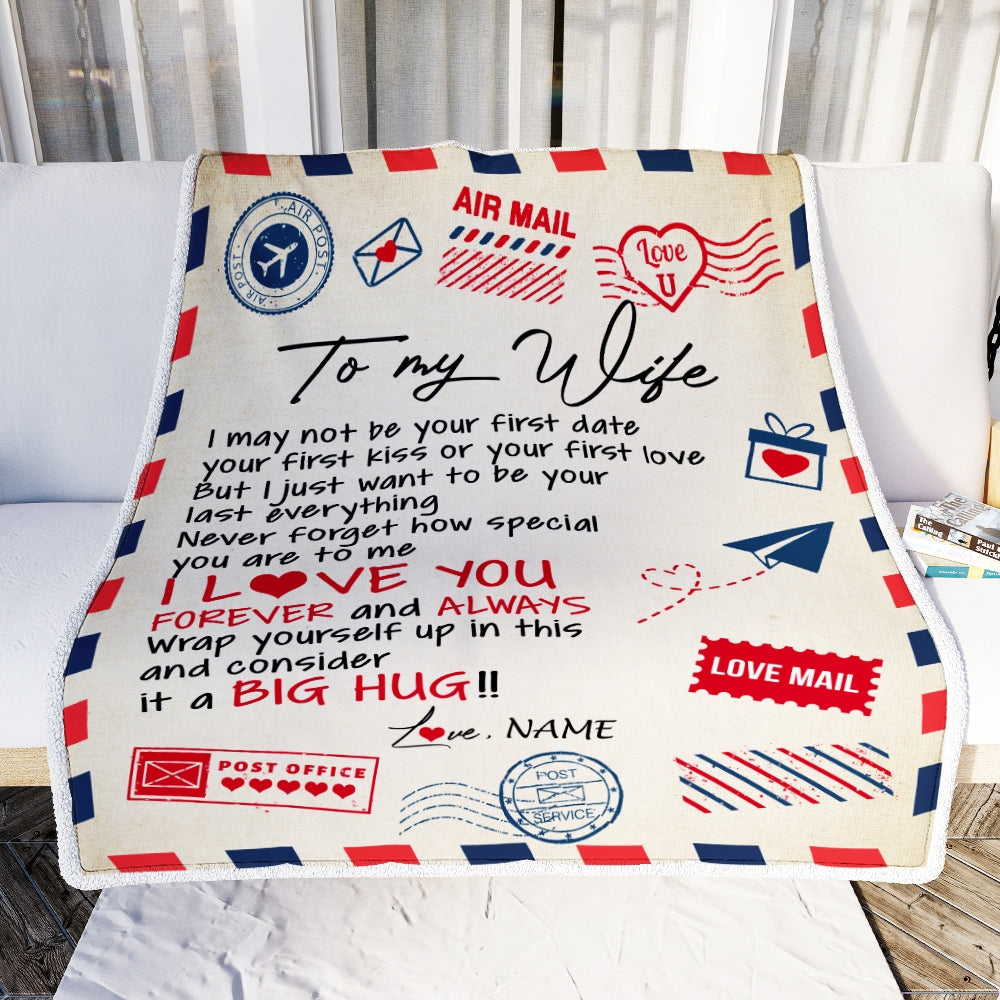 AIR POST
AIR POST
AIR POST
AIR MAIL
Love
U
To my Wife
I may not be your first date
your first kiss or your first love
But I just want to be your
last everything
Never forget how special
you are to me
I L❤VE YOU
FOREVER and ALWAYS
Wrap yourself up in this
and consider
it a BIG HUG!!
LOVE MAIL
L❤ve, NAME
POST OFFICE
POST
SERVICE
The
Calling
Paul